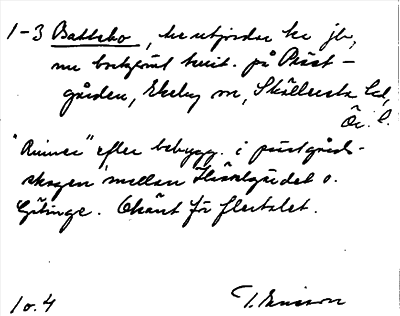 1-3 Battsbo, se utjordar se jb,
nu bortglömt torst. på Präst-
gården, Ekeby sn, Sköllersta hd,
Ör. l.
"Ruiner" efter bebygg. i prästgårds-
skogen mellan Härdgärdet o.
Götinge. Okänt för flertalet.
1 o. 4 T. Ericsson